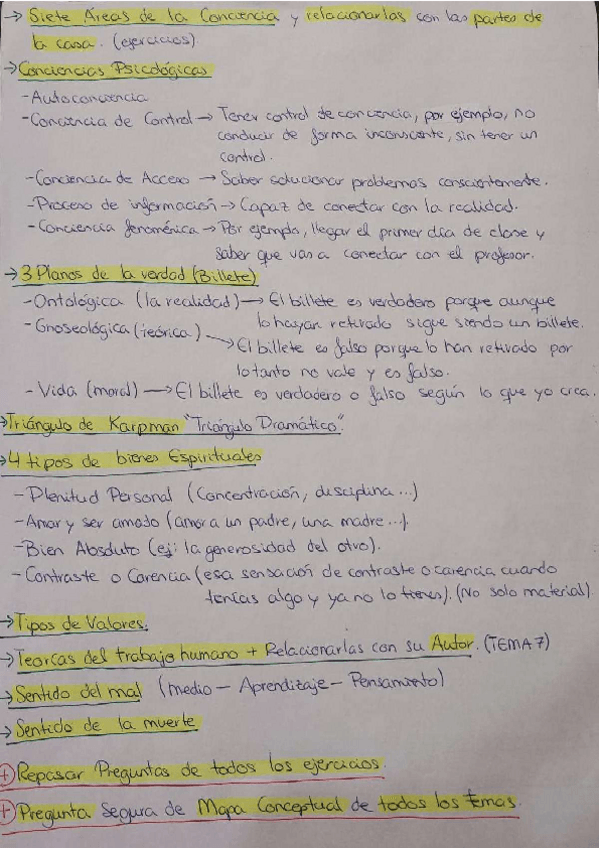 → Siete Áreas de la Conciencia y relacionarlas con las partes de
la casa. (ejercicios).
→ Conciencias Psicológicas
- Autoconciencia
- Conciencia de Control → Tener control de conciencia, por ejemplo, no
conducir de forma inconsciente, sin tener un
control.
- Conciencia de Acceso → Saber solucionar problemas conscientemente.
- Proceso de información → Capaz de conectar con la realidad.
- Conciencia fenoménica → Por ejemplo, llegar el primer día de clase y
saber que van a conectar con el profesor.
→ 3 Planos de la verdad (Billete)
- Ontológica (la realidad) → El billete es verdadero porque aunque
lo hayan retirado sigue siendo un billete.
- Gnoseológica (teórica) → El billete es falso porque lo han retirado por
lo tanto no vale y es falso.
- Vida (moral) → El billete es verdadero o falso según lo que yo crea.
→ Triángulo de Karpman "Triángulo Dramático".
→ 4 tipos de bienes Espirituales
- Plenitud Personal (Concentración, disciplina...)
- Amar y ser amado (amor a un padre, una madre...).
- Bien Absoluto (ej: la generosidad del otro).
- Contraste o Carencia (esa sensación de contraste o carencia cuando
tenías algo y ya no lo tienes). (No solo material).
→ Tipos de Valores.
→ Teorías del trabajo humano + Relacionarlas con su Autor. (TEMA 7)
→ Sentido del mal (medio - Aprendizaje - Pensamiento)
→ Sentido de la muerte
+ Repasar Preguntas de todos los ejercicios.
+ Pregunta Segura de Mapa Conceptual de todos los temas.